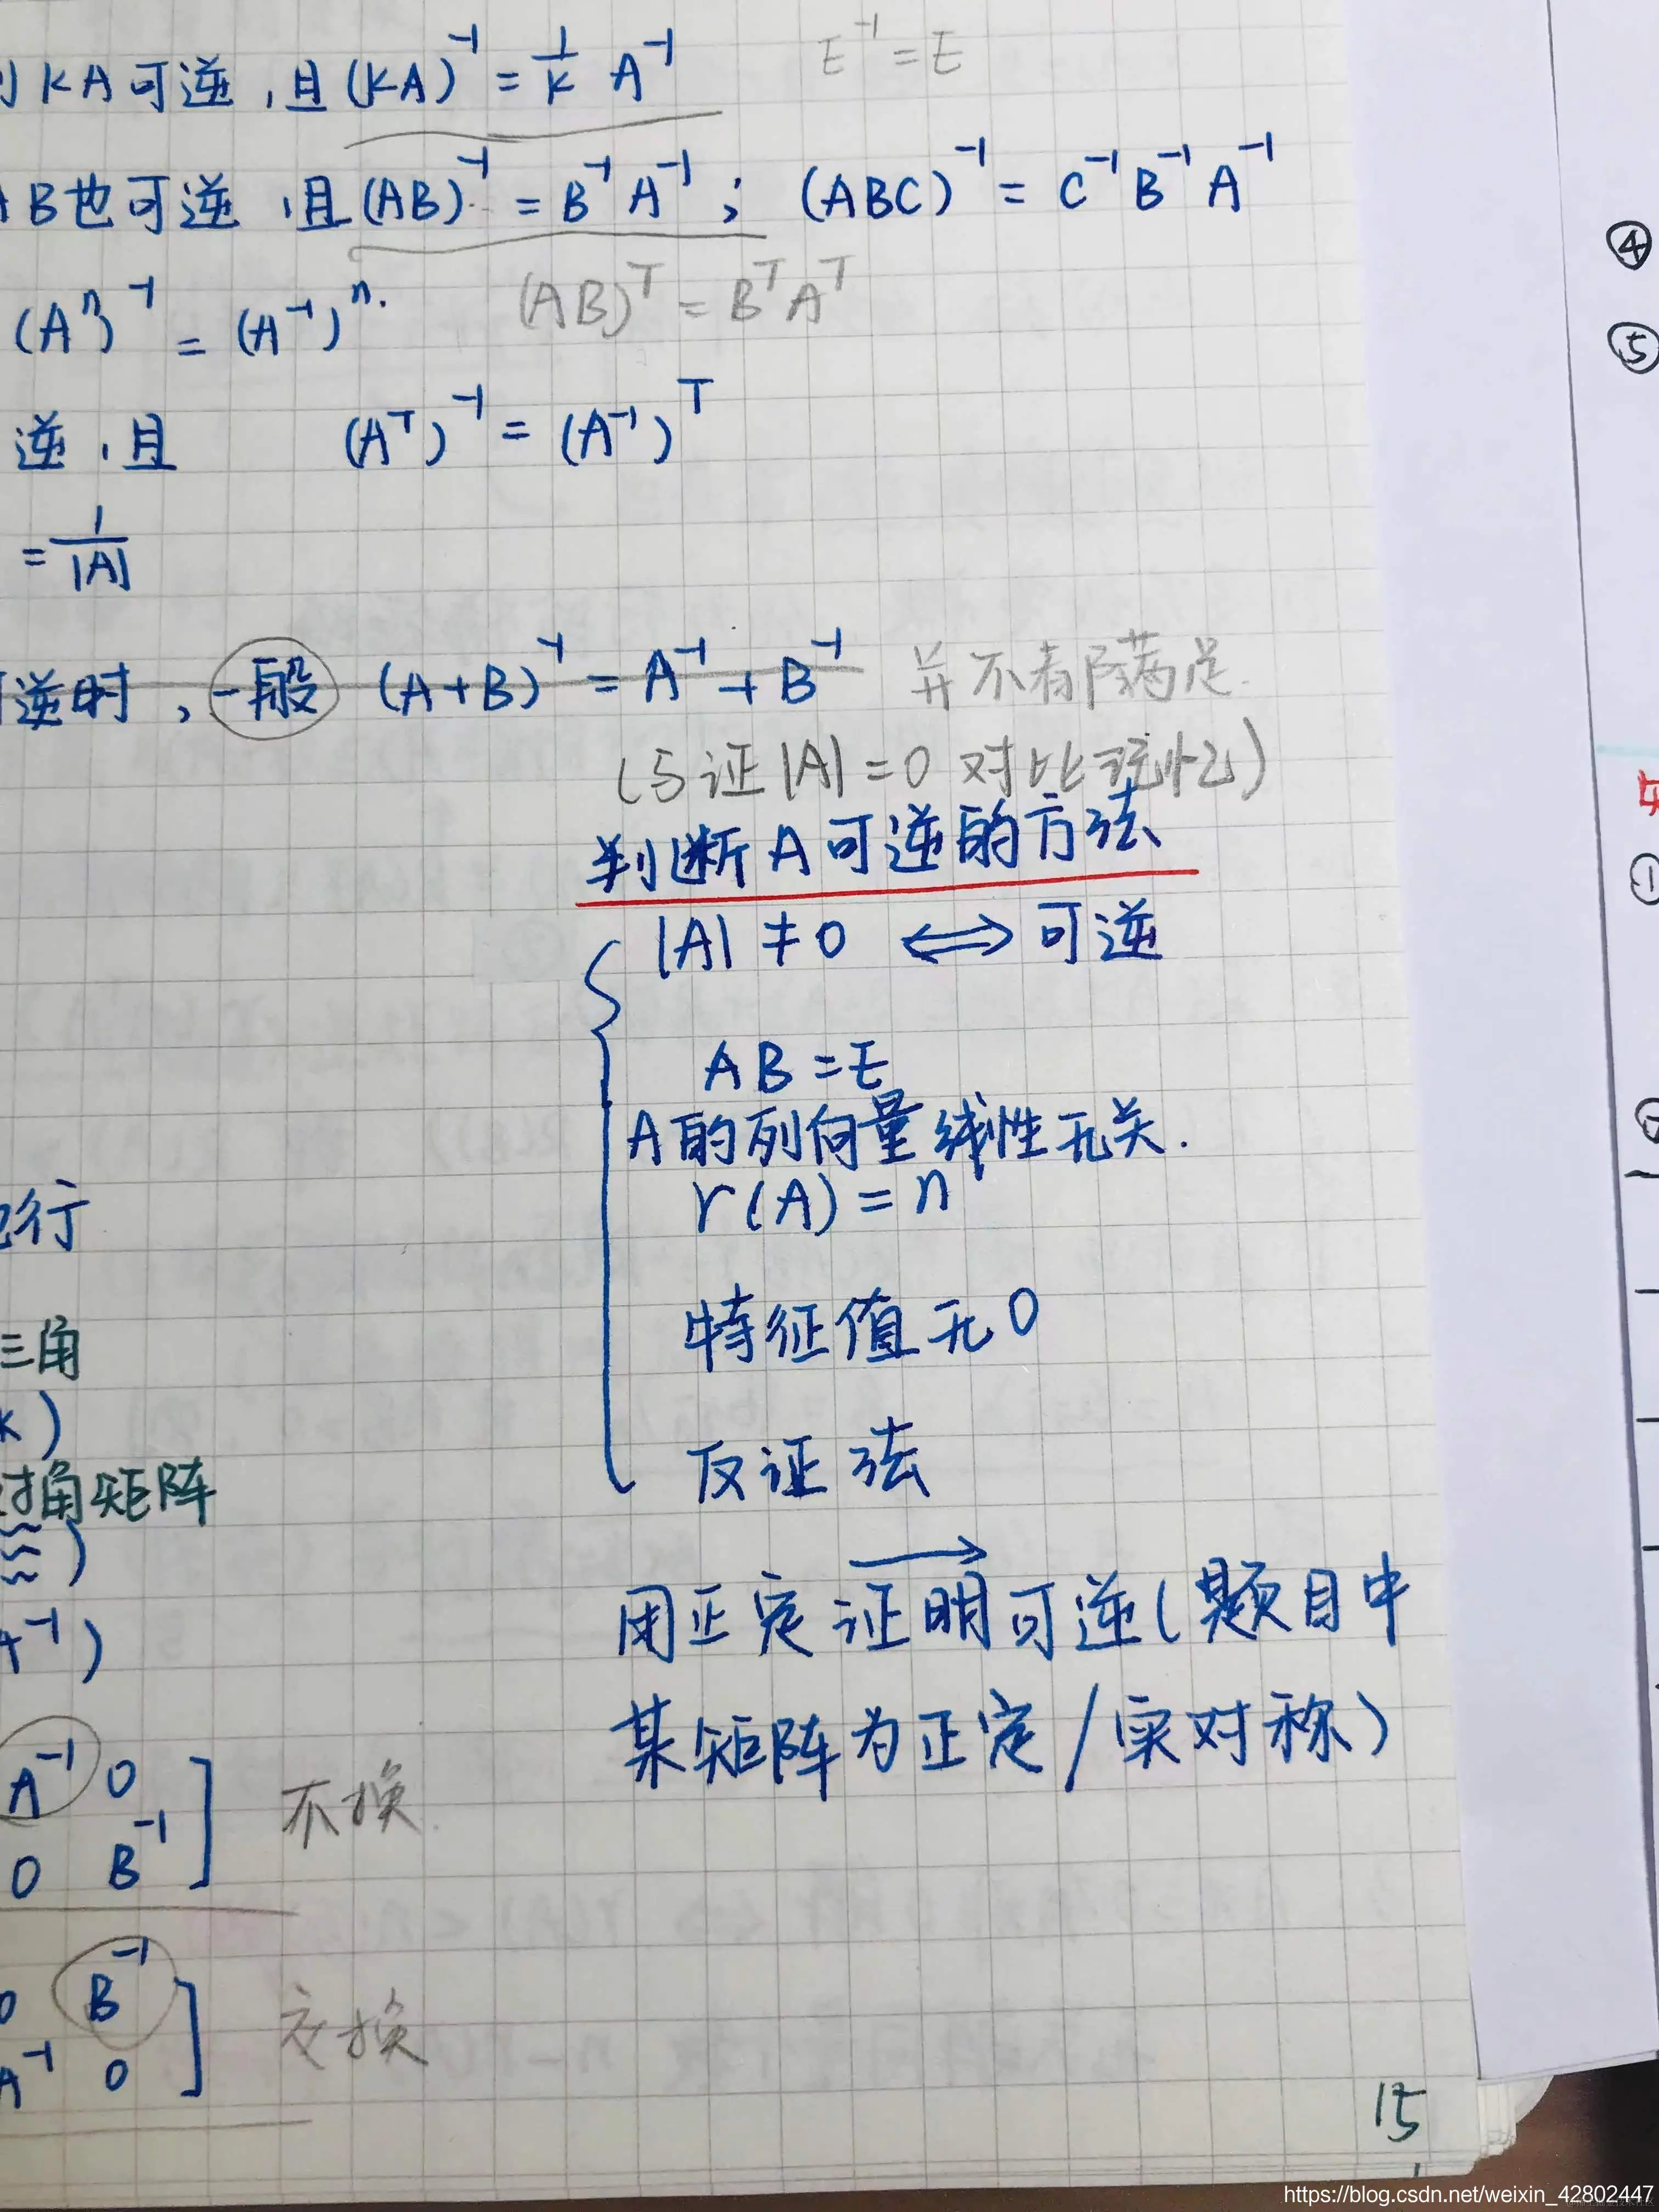 KA可逆,且(KA)⁻¹ = 1/K A⁻¹ E⁻¹ = E
B也可逆,且(AB)⁻¹ = B⁻¹A⁻¹; (ABC)⁻¹ = C⁻¹B⁻¹A⁻¹
(AB)ᵀ = BᵀAᵀ
(Aⁿ)⁻¹ = (A⁻¹)ⁿ.
逆,且 (Aᵀ)⁻¹ = (A⁻¹)ᵀ
= 1/|A|
逆时,一般 (A+B)⁻¹ = A⁻¹+B⁻¹ 并不都满足.
(与证|A|=0对比记忆)
判断A可逆的方法
|A|≠0 ⟺ 可逆
AB=E
A的列向量线性无关.
r(A)=n
行
特征值无0
三角
反证法
角矩阵
用正定证明可逆(题目中
某矩阵为正定/实对称)
A⁻¹ 0
0 B⁻¹
不换
B⁻¹
A⁻¹ 0
交换
15
④
⑤
①
②
https://blog.csdn.net/weixin_42802447